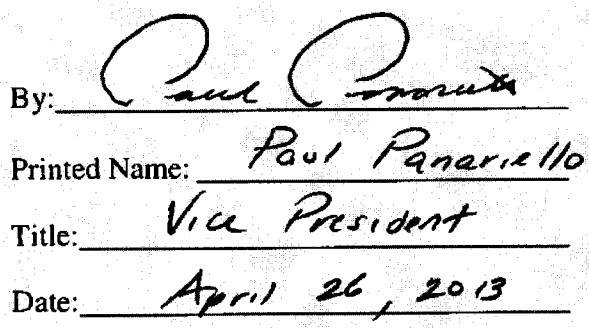 By: Paul Panariello
Printed Name: Paul Panariello
Title: Vice President
Date: April 26, 2013